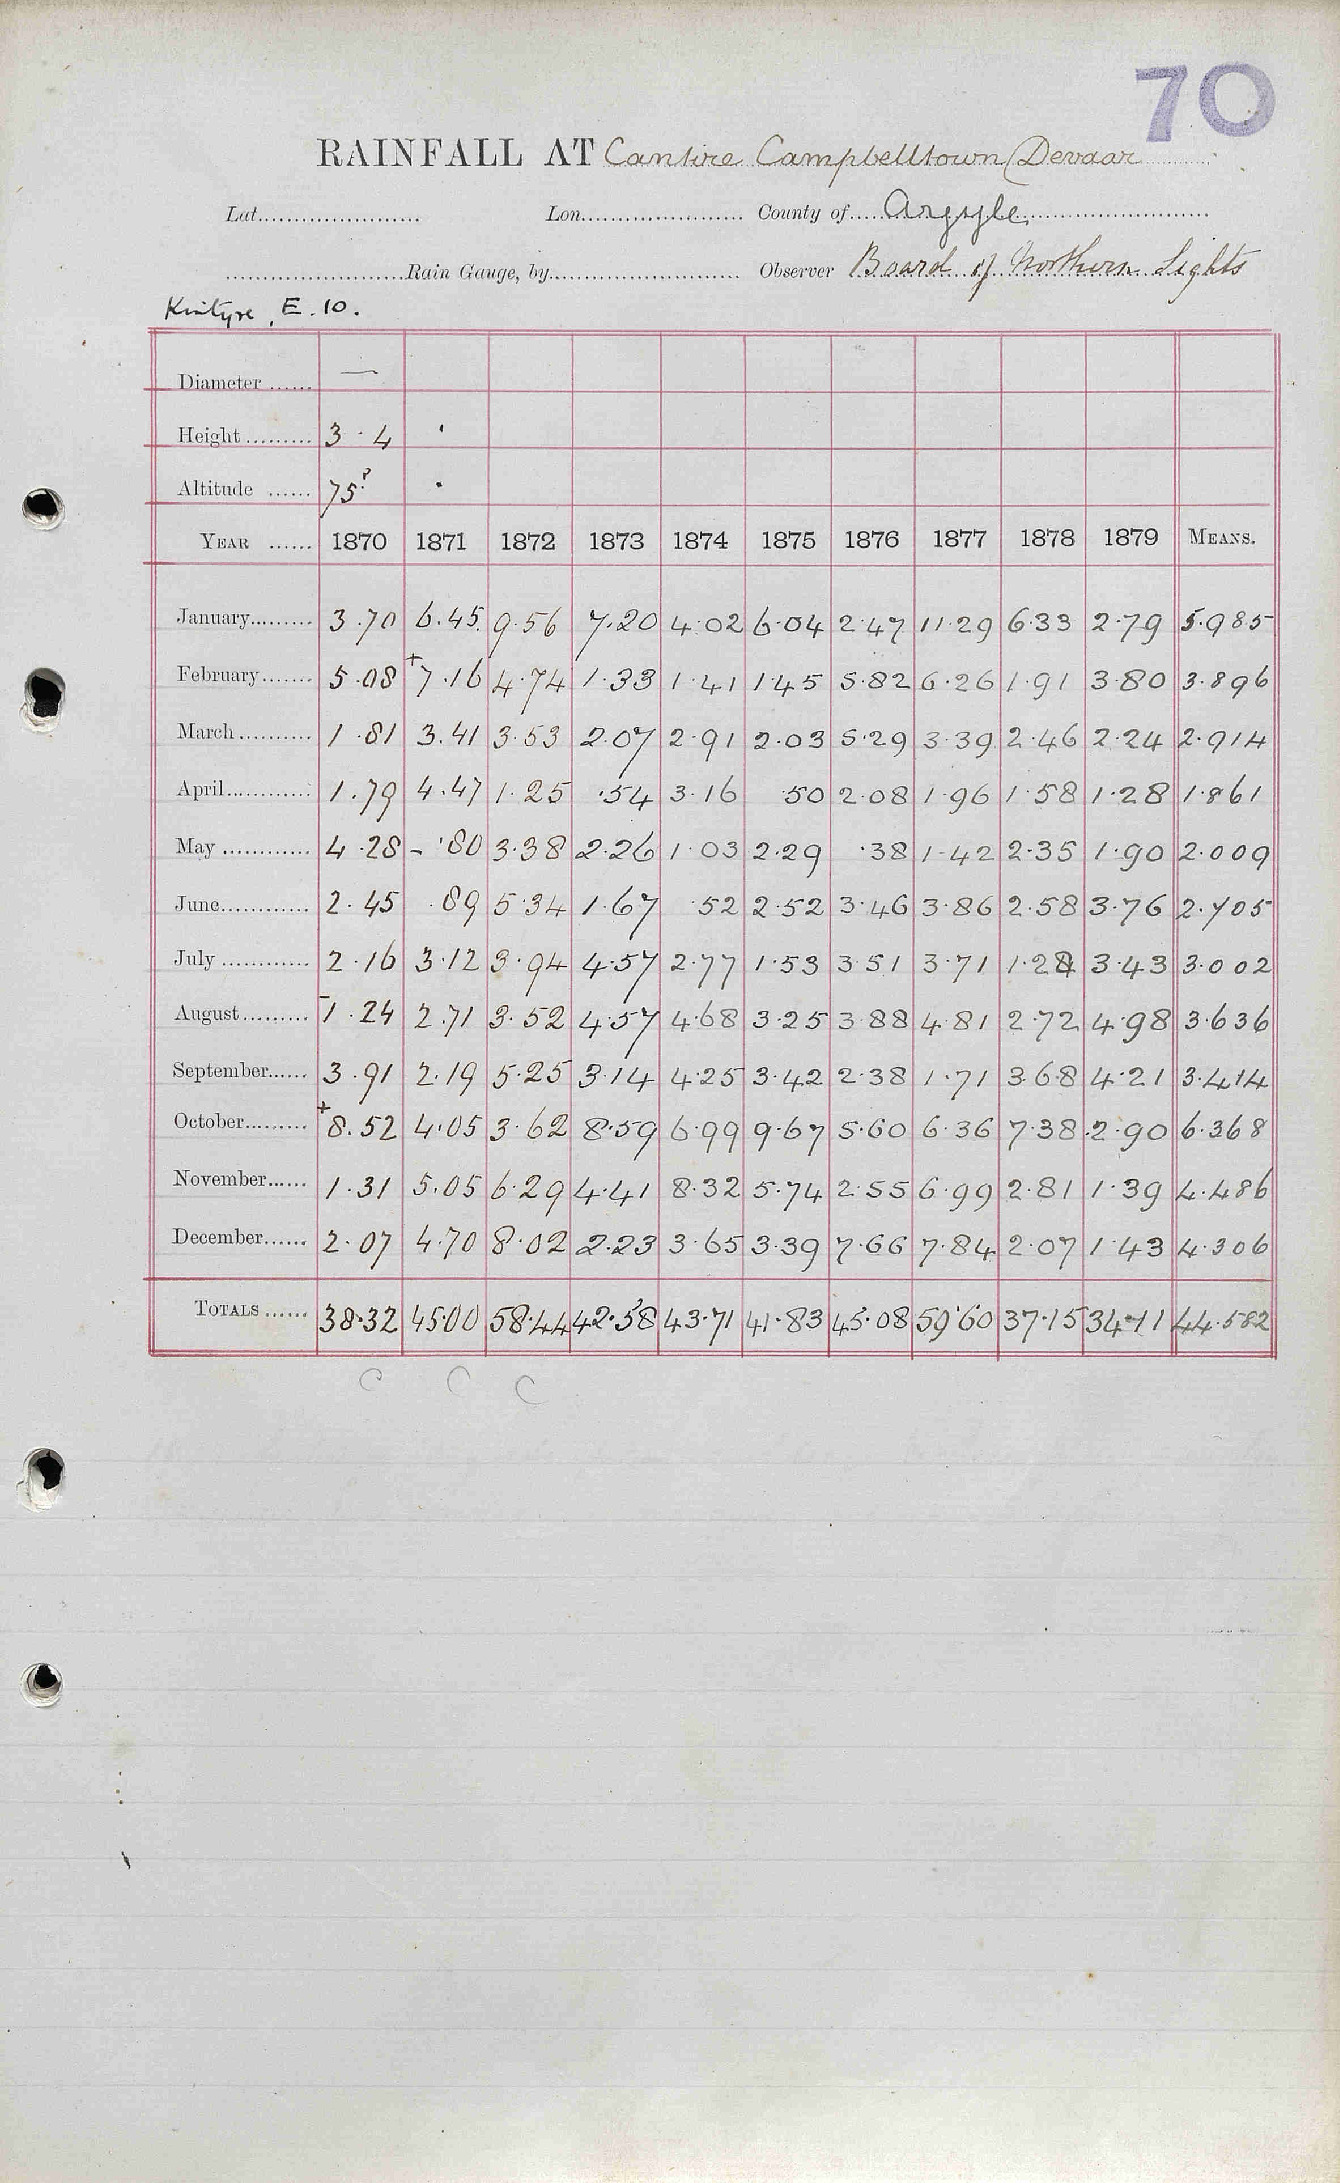 70
RAINFALL AT Cantire Campbelltown (Devaar
Lat...................... Lon...................... County of Argyle
......................Rain Gauge, by...................... Observer Board of Northern Lights
Kintyre, E. 10.
Diameter ...... —
Height ......... 3 · 4 ·
Altitude ...... 75? ·
YEAR ...... 1870 1871 1872 1873 1874 1875 1876 1877 1878 1879 MEANS.
January......... 3.70 6.45 9.56 7.20 4.02 6.04 2.47 11.29 6.33 2.79 5.985
February....... 5.08 +7.16 4.74 1.33 1.41 1.45 5.82 6.26 1.91 3.80 3.896
March.......... 1.81 3.41 3.53 2.07 2.91 2.03 5.29 3.39 2.46 2.24 2.914
April............ 1.79 4.47 1.25 .54 3.16 .50 2.08 1.96 1.58 1.28 1.861
May ............ 4.28 - .80 3.38 2.26 1.03 2.29 .38 1.42 2.35 1.90 2.009
June............ 2.45 .89 5.34 1.67 .52 2.52 3.46 3.86 2.58 3.76 2.705
July ............ 2.16 3.12 3.94 4.57 2.77 1.53 3.51 3.71 1.28 3.43 3.002
August......... -1.24 2.71 3.52 4.57 4.68 3.25 3.88 4.81 2.72 4.98 3.636
September...... 3.91 2.19 5.25 3.14 4.25 3.42 2.38 1.71 3.68 4.21 3.414
October......... +8.52 4.05 3.62 8.59 6.99 9.67 5.60 6.36 7.38 2.90 6.368
November...... 1.31 5.05 6.29 4.41 8.32 5.74 2.55 6.99 2.81 1.39 4.486
December...... 2.07 4.70 8.02 2.23 3.65 3.39 7.66 7.84 2.07 1.43 4.306
TOTALS ...... 38.32 45.00 58.44 42.58 43.71 41.83 45.08 59.60 37.15 34.11 44.582
C C C